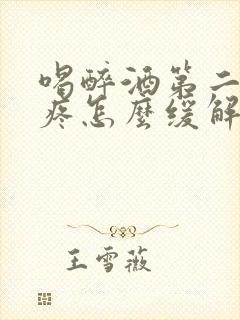 喝醉酒第二
疼怎麼緩解
王雪薇